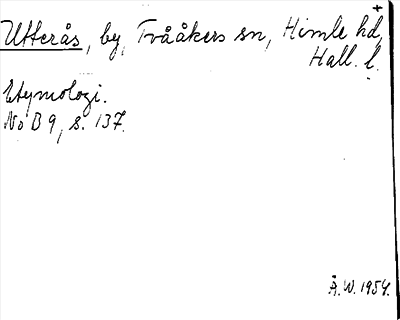 +
Utterås, by, Tvååkers sn, Himle hd,
Hall. l.
Etymologi.
NoB 9, s. 137.
Å.W. 1954.